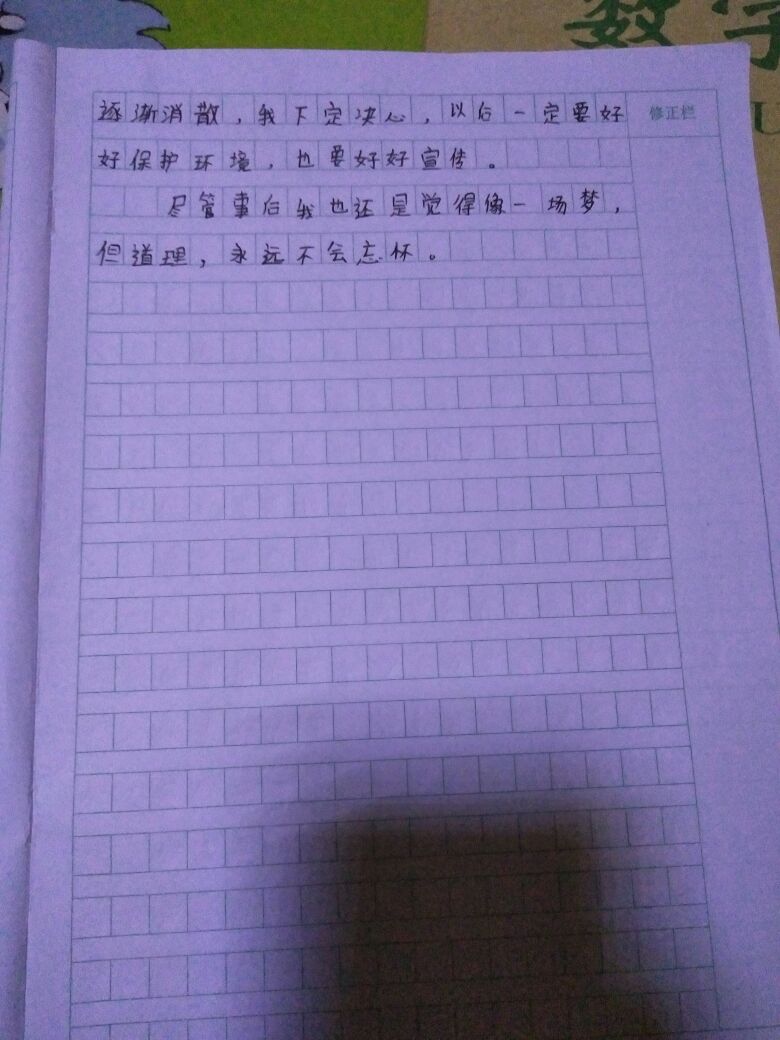 数学
逐渐消散，我下定决心，以后一定要好
修正栏
好保护环境，也要好好宣传。
尽管事后我也还是觉得像一场梦，
但道理，永远不会忘怀。